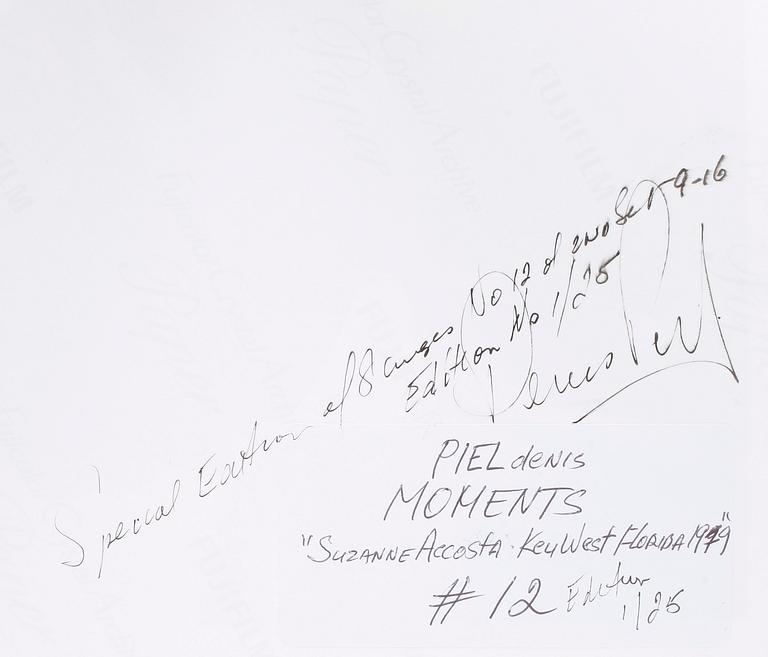 Special Edition of 8 images No 12 of 2ND Set 9-16
Edition No 1/25
Denis Piel
PIEL denis
MOMENTS
"SUZANNE ACCOSTA · Key West FLORIDA 1979"
# 12 Edition 1/25
FUJIFILM
Fujicolor Crystal Archive
Paper